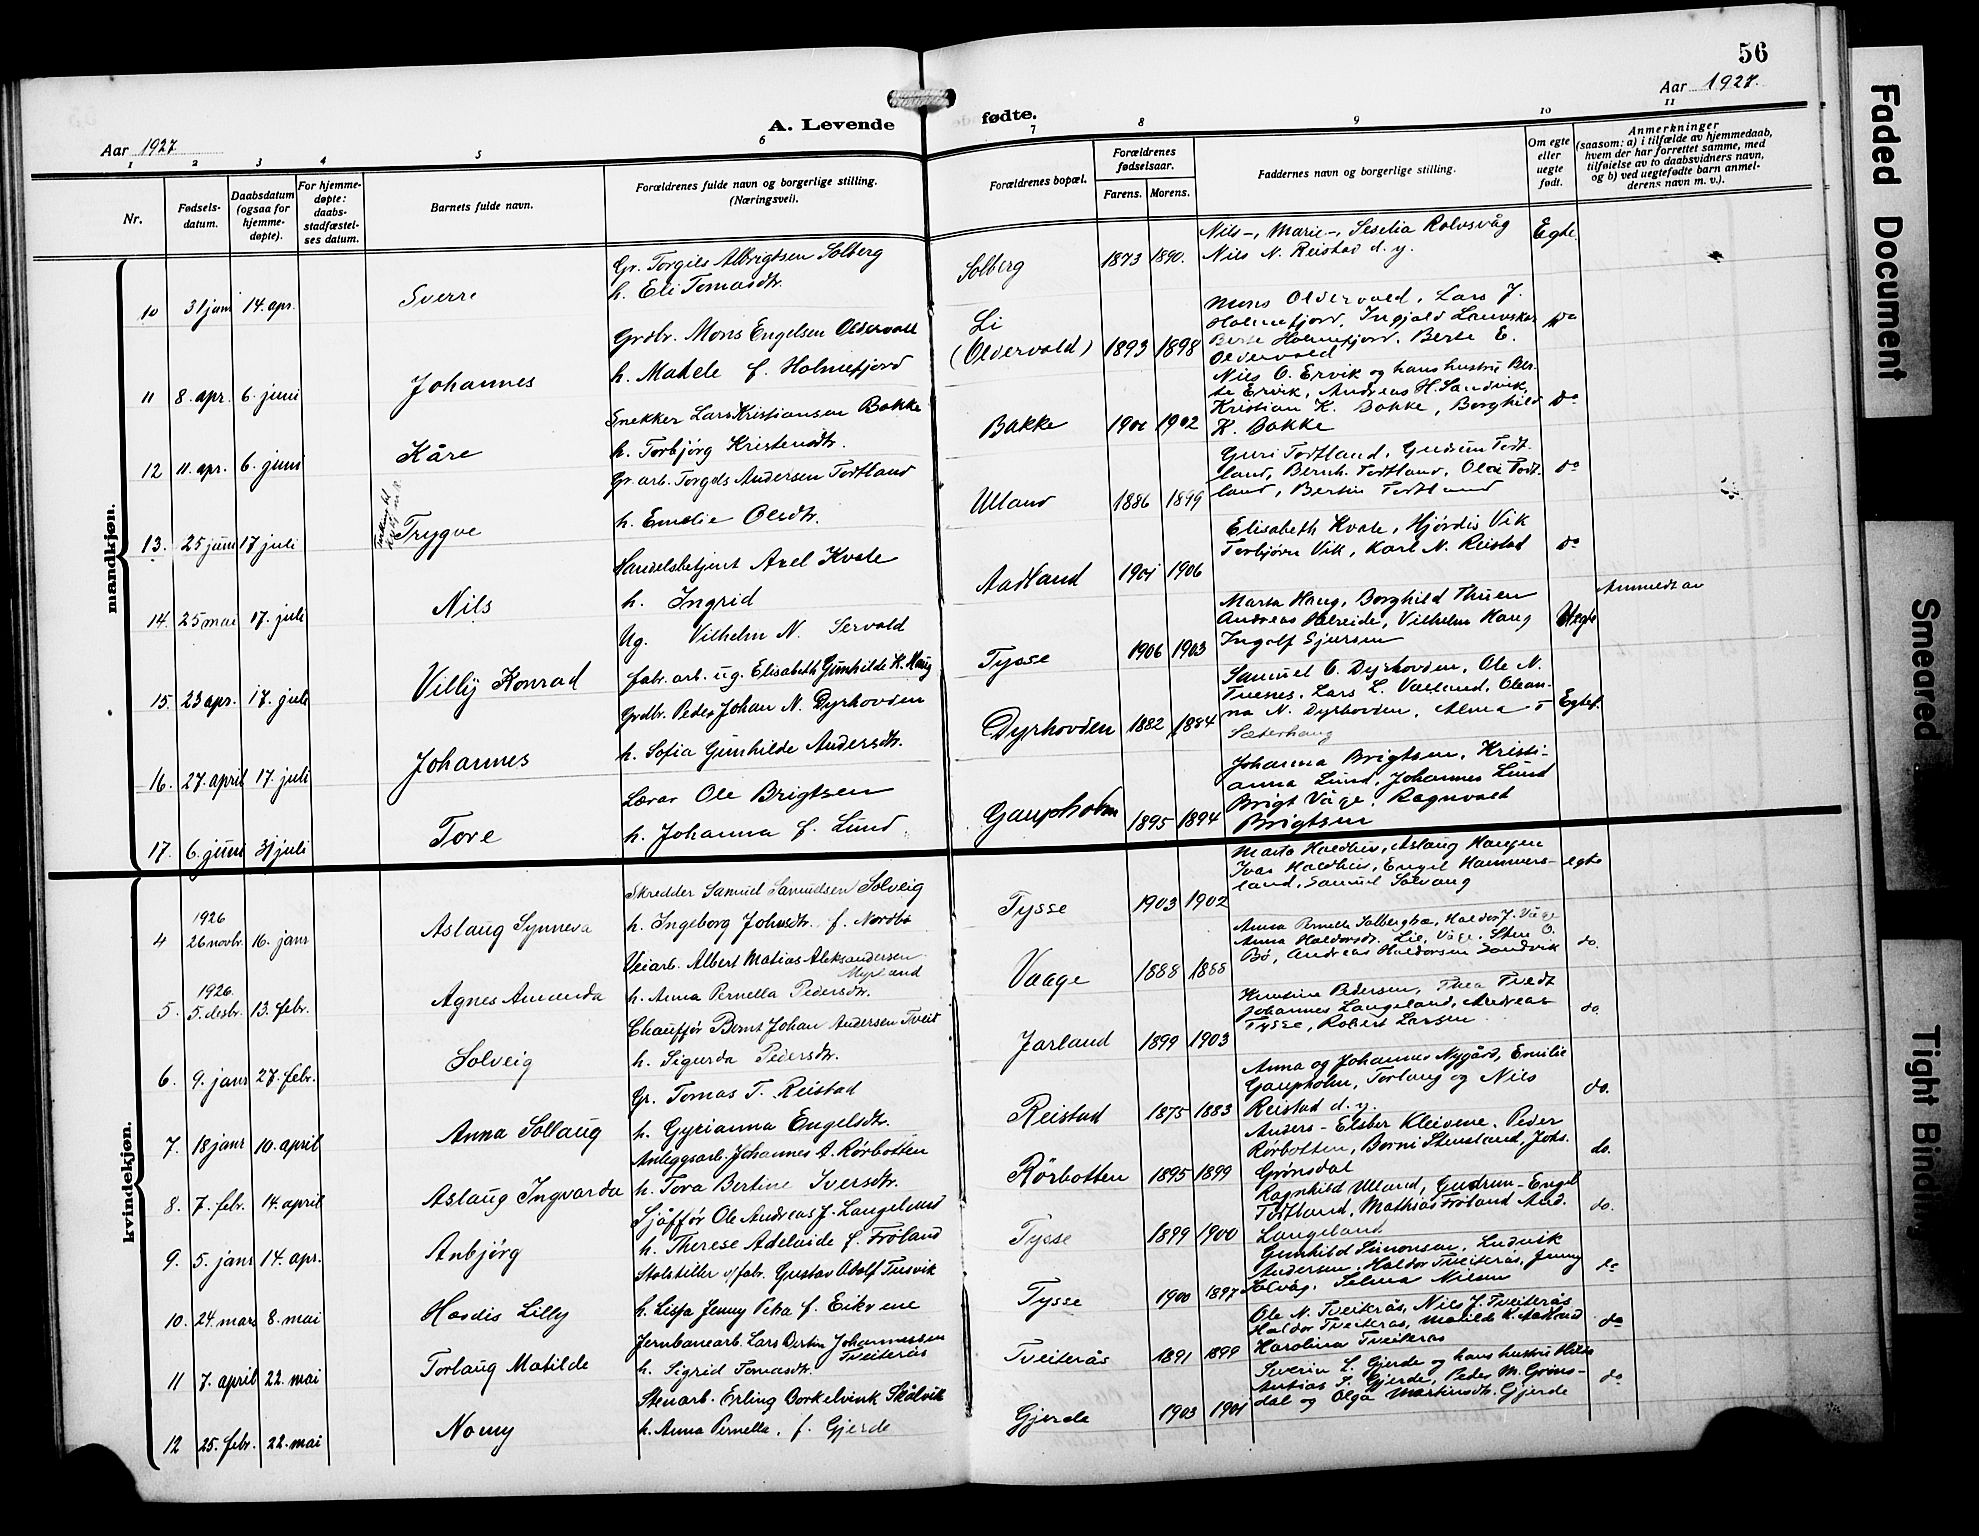 56
Aar 1927.
Aar 1927
A. Levende fødte.
1 2 3 4 5 6 7 8 9 10 11
Nr.
Fødsels-
datum.
Daabsdatum
(ogsaa for
hjemme-
døpte).
For hjemme-
døpte:
daabs-
stadfæstel-
ses datum.
Barnets fulde navn.
Forældrenes fulde navn og borgerlige stilling.
(Næringsvei).
Forældrenes bopæl.
Forældrenes
fødselsaar.
Farens. Morens.
Faddernes navn og borgerlige stilling.
Om egte
eller
uegte
født.
Anmerkninger
(saasom: a) i tilfælde av hjemmedaab,
hvem der har forrettet samme, med
tilføielse av to daabsvidners navn,
og b) ved uegtefødte barn anmel-
derens navn m. v.).
mandkjøn.
10 31 juni 14. apr. Sverre
Gr. Torgils Albrigtsen Solberg
h. Eli Tomasdtr.
Solberg 1873 1890.
Nils-, Marie-, Seselia Rolvsvåg
Nils N. Reistad d. y.
Egte
11 8. apr. 6. juni Johannes
Grdbr. Mons Engelsen Oldervoll
h. Makele f. Holmefjord
Li
(Oldervold) 1893 1898
Mons Oldervold, Lars J.
Holmefjord, Ingjald
Berte Holmefjord, Berte E.
Oldervold
do
12 11. apr. 6. juni Kåre
Snekker Lars Kristiansen Bakke
h. Torbjørg Kristensdtr.
Bakke 1902
Nils O. Ervik og hans hustru Ber-
te Ervik, Andreas H. Sandvik,
Kristian K. Bakke, Borghild
K. Bakke
do
13. 25 juni 17 juli Trygve
Gr. arb. Torgels Andersen Toftland
h. Emelie Olsdtr.
Ulland 1886 1899
Guri Toftland, Gudrun Toft-
land, Bernh. Toftland, Olai Toft-
land, Bertin Toftland
do
14. 25 mai 17. juli Nils
Handelsbetjent Axel Kvale
h. Ingrid
Aadland 1901 1906
Elisabeth Kvale, Hjördis Vik
Torbjørn Vik, Karl N. Reistad
do
15. 23 apr. 17. juli Villÿ Konrad
Ug. Vilhelm N. Servold
fabr. arb. ug. Elisabeth Gunhilde K. Haug
Tysse 1906 1903
Marta Haug, Borghild Thuen
Andreas Halreide, Vilhelm Haug
Ingolf Sjursen
Uegte
Anmeldt av
16. 27. april 17. juli Johannes
Grdbr. Peder Johan N. Dyrhovden
h. Sofia Gunhilde Andersdtr.
Dyrhovden 1882 1884
Samuel O. Dyrhovden, Ole N.
Tuenes, Lars L. Vatland, Olean-
na N. Dyrhovden, Alma
Sæterhaug
Egtef.
17. 6. juni 31 juli Tore
Lærar Ole Brigtsen
h. Johanna f. Lund
Gaupholm 1895 1894
Johanna Brigtsen, Kristi-
anna Lund, Johannes Lund
Brigt Våge, Ragnvald
Brigtsen
kvindekjøn.
4 1926
26 novbr. 16. janr Aslaug Synneva
Skredder Samuel Samuelsen Solveig
h. Ingeborg Johnsdtr. f. Nordbø
Tysse 1903 1902
Marta Haldhus, Aslaug Haugen
Ivar Haldhus, Engel Hammers-
land, Samuel Solvang
egte
5. 1926.
5. desbr. 13. febr. Agnes Amanda
Veiarb. Albert Matias Aleksandersen
Myrland
h. Anna Pernella Pedersdtr.
Vaage 1888 1888
Anna Pernella Solbergbø, Haldor J. Våge
Anna Haldorsdtr. Lie, Våge, Sten O.
Bø, Andreas Haldorsen Sandvik
do.
6. 9. janr 27. febr. Solveig
Chaufför Bernt Johan Andersen Tveit
h. Sigurda Pedersdtr.
Jarland 1899 1903
Kristine Pedersen, Thea Tvedt
Johannes Langeland, Andreas
Tysse, Robert Larsen
do.
7. 18 janr 10. april Anna Sollaug
Gr. Tomas T. Reistad
h. Gyrianna Engelsdtr.
Reistad 1875 1883
Anna og Johannes Nygård, Emilie
Gaupholm, Torlaug og Nils
Reistad d. y.
do.
8. 7. febr. 14. april Aslaug Ingvarda
Anleggsarb. Johannes A. Rørbotten
h. Tora Bertine Iversdtr.
Rörbotten 1895 1899
Anders- Elsber Kleivene, Peder
Rørbotten, Borni Stensland, Johs.
Grønsdal
do.
9. 5. janr 14. apr. Anbjörg
Sjåffør Ole Andreas J. Langeland
h. Therese Adelaide f. Fröland
Tysse 1899 1900
Ragnhild Ulland, Gudrun- Engel
Toftland, Mathias Fröland And.
Langeland
do.
10. 24. mars 8. mai Hardis Lilly
Stolstiller v/ fabr. Gustav Adolf Tusvik
h. Lisfa Jenny Petra f. Eikrene
Tysse 1900 1897
Gunhild Simonsen, Ludvik
Andersen, Haldor Tveiterås, Jenny
Solvåg, Selma Nilsen
do
11 7. april 22. mai Torlaug Matilde
Jernbanearb. Lars Bertin Johannessen
Tveiterås
h. Sigrid Tomasdtr.
Tveiterås 1891 1899
Ole N. Tveiterås, Nils J. Tveiterås
Haldor Tveiterås, Matilde K. Aadland
Karolina Tveiterås
do
12 25. febr. 22. mai Nomy
Stenarb. Erling Borkelvink Skålvik
h. Anna Pernella, f. Gjerde
Gjerde 1903 1901
Severin L. Gjerde og hans hustru Hilda
Antias S. Gjerde, Peder M. Gröns-
dal og Olga Martinsdtr. Gjerde
do
Faded Document
Smeared
Tight Binding